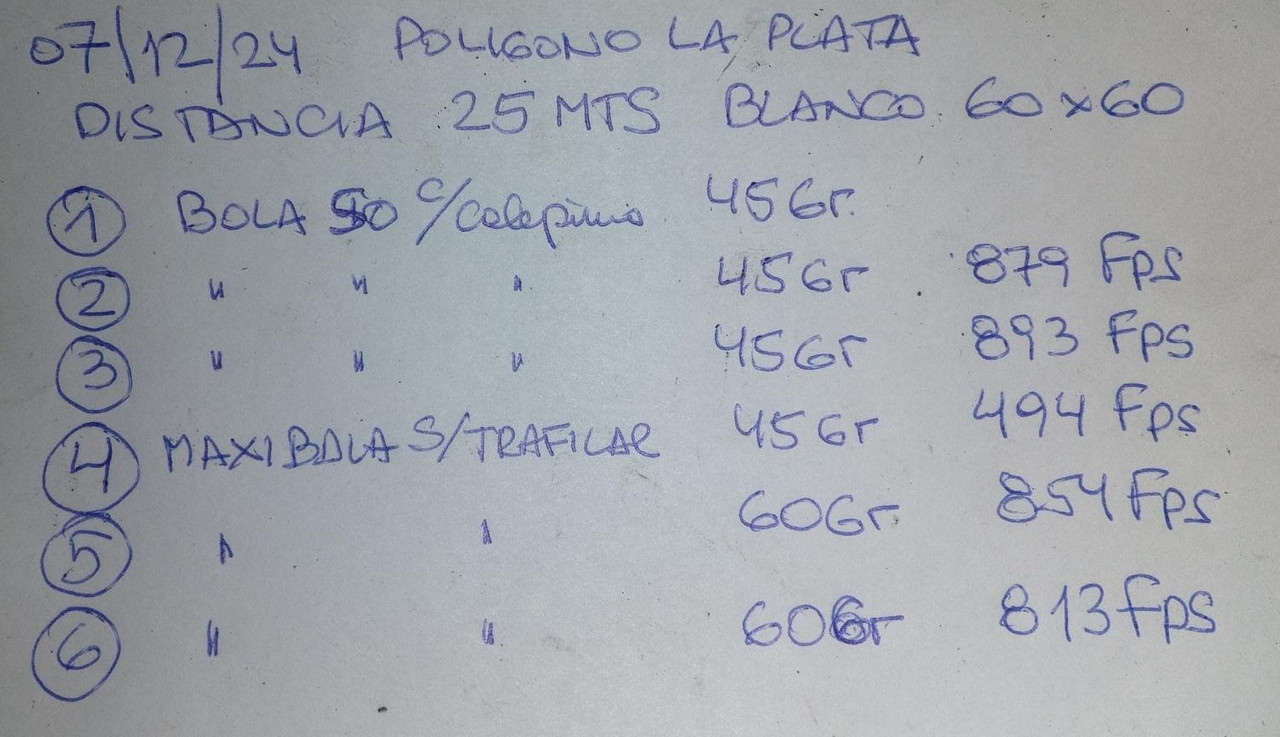 07/12/24 POLIGONO LA PLATA
DISTANCIA 25 MTS BLANCO 60x60
1 BOLA 50 c/calepino 45Gr.
2 " " " 45Gr 879 Fps
3 " " " 45Gr 893 Fps
4 MAXIBOLA S/TRAFILAR 45Gr 494 Fps
5 " " 60Gr 854 Fps
6 " " 60Gr 813 fps